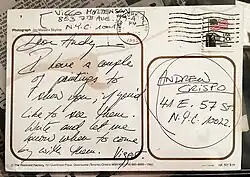 VIGGO MORTENSEN
853 7TH AVE.
N.Y.C. 10019
Dear Andy—
I have a couple
of paintings to
show you, if you'd
like to see them.
Write and let me
know when to come
by with them.
Viggo
ANDREW
CRISPO
41 E. 57 ST
N.Y.C. 10022.